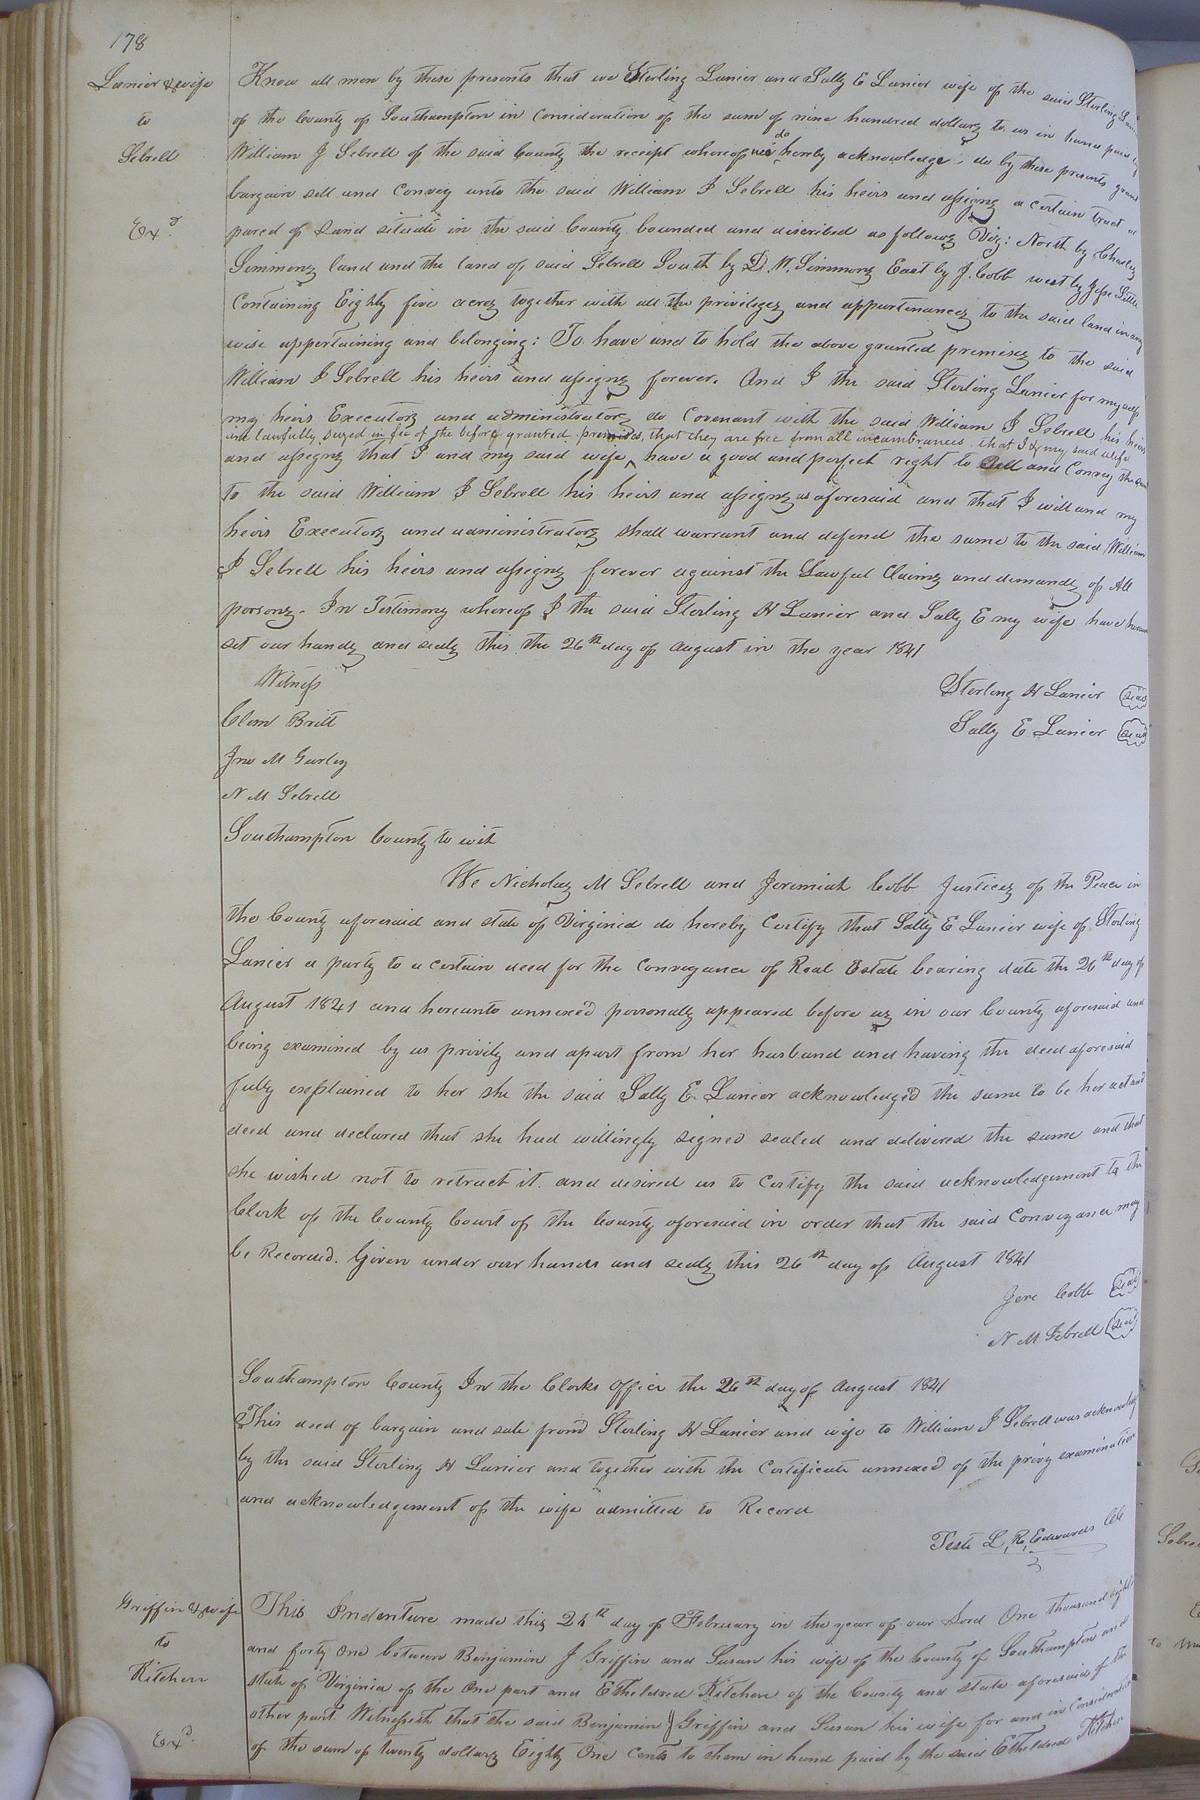 178
Lanier & wife
to
Sebrell
Exd.
Know all men by these presents that we Sterling Lanier and Sally E Lanier wife of the said Sterling
of the County of Southampton in consideration of the sum of nine hundred dollars to us in hand paid by
William J Sebrell of the said County the receipt whereof we do hereby acknowledge do by these presents grant
bargain sell and Convey unto the said William J Sebrell his heirs and assigns a certain tract or
parcel of Land situate in the said County bounded and discribed as follows Viz: North by Charles
Simmons land and the land of said Sebrell South by D. W. Simmons East by J. Cobb west by Jesse Little
Containing Eighty five acres together with all the privileges and appurtenances to the said land in any
wise appertaining and belonging: To have and to hold the above granted premises to the said
William J Sebrell his heirs and assigns forever. And I the said Sterling Lanier for myself
my heirs Executors and administrators do Covenant with the said William J Sebrell his heirs
are lawfully seized in fee of the before granted premises, that they are free from all incumbrances that I & my said wife
and assigns that I and my said wife ^ have a good and perfect right to Sell and Convey the
to the said William J Sebrell his heirs and assigns as aforesaid and that I will and my
heirs Executors and administrators shall warrant and defend the same to the said William
J Sebrell his heirs and assigns forever against the Lawful Claims and demands of All
persons. In Testimony whereof I the said Sterling H Lanier and Sally E my wife have
set our hands and seals this the 26th day of August in the year 1841
Witness
Sterling H Lanier Seal
Clem Britt
Sally E Lanier Seal
Jno M Gurley
N M Sebrell
Southampton County to wit
We Nicholas M Sebrell and Jeremiah Cobb Justices of the Peace in
the County aforesaid and state of Virginia do hereby Certify that Sally E Lanier wife of Sterling
Lanier a party to a certain deed for the conveyance of Real Estate bearing date the 26th day of
August 1841 and hereunto annexed personally appeared before us in our County aforesaid and
being examined by us privily and apart from her husband and having the deed aforesaid
fully explained to her she the said Sally E. Lanier acknowledged the same to be her act and
deed and declared that she had willingly signed sealed and delivered the same and that
she wished not to retract it. and desired us to Certify the said acknowledgement to the
Clerk of the County Court of the County aforesaid in order that the said Conveyance may
be Recorded. Given under our hands and seals this 26th day of August 1841
Jere Cobb Seal
N M Sebrell Seal
Southampton County In the Clerks Office the 26th day of August 1841
This deed of bargain and sale from Sterling H Lanier and wife to William J Sebrell was
by the said Sterling H Lanier and together with the Certificate annexed of the privy examination
and acknowledgement of the wife admitted to Record
Teste L, R, Edwards Clk
Griffin & wife
to
Kitchen
Exd.
This Indenture made this 24th day of February in the year of our Lord One thousand eight
and forty One between Benjamin J Griffin and Susan his wife of the County of Southampton and
state of Virginia of the One part and Etheldred Kitchen of the County and state aforesaid of the
other part. Witnesseth that the said Benjamin J Griffin and Susan his wife for and in
of the sum of twenty dollars Eighty One Cents to them in hand paid by the said Etheldred Kitchen